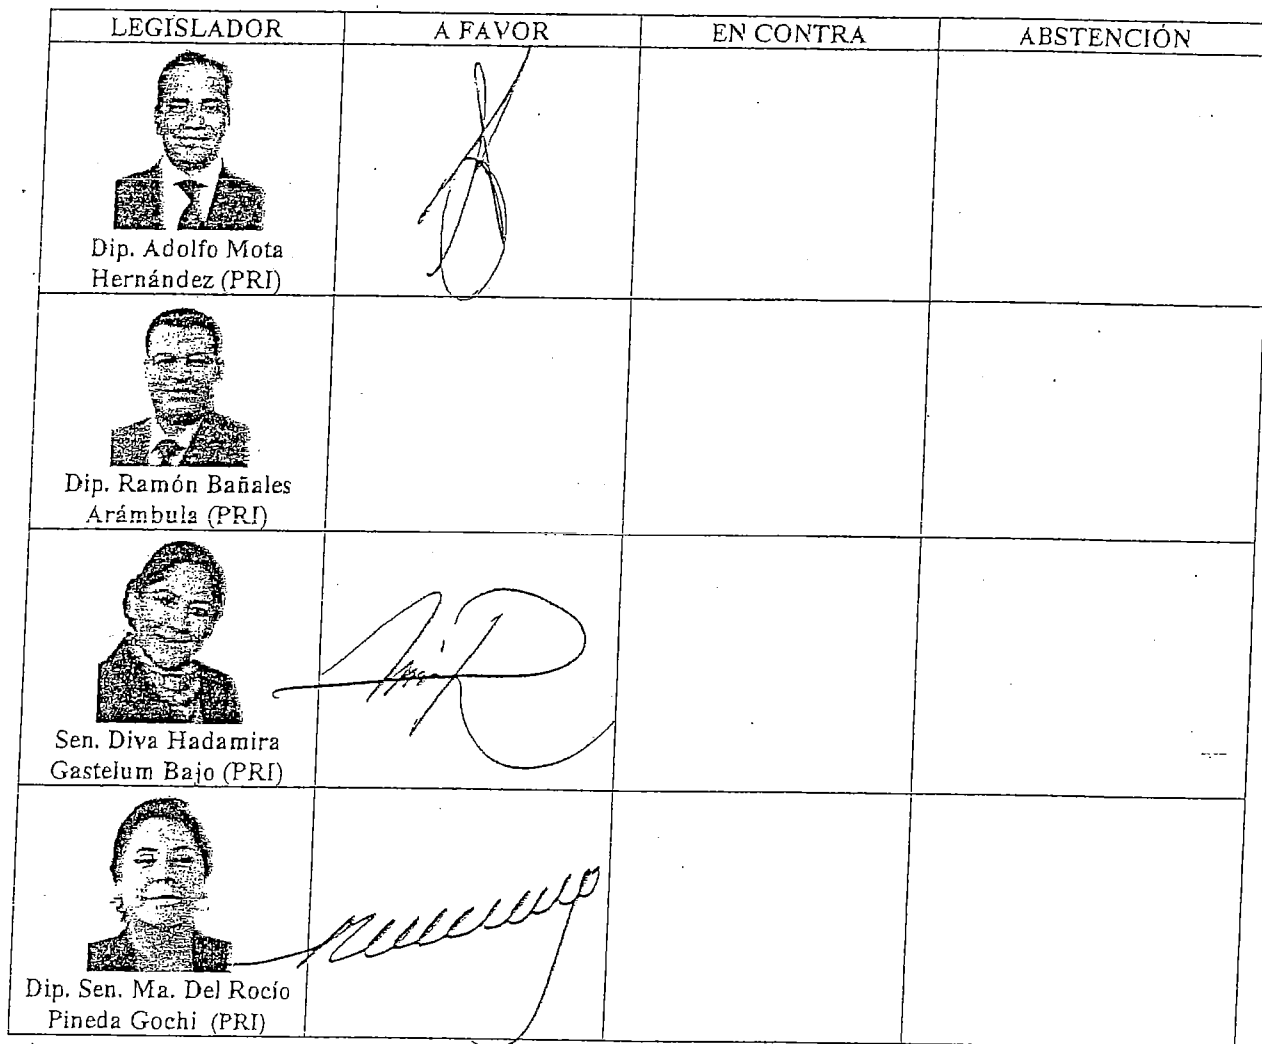 LEGISLADOR A FAVOR EN CONTRA ABSTENCIÓN
Dip. Adolfo Mota
Hernández (PRI)
Dip. Ramón Bañales
Arámbula (PRI)
Sen. Diva Hadamira
Gastelum Bajo (PRI)
Dip. Sen. Ma. Del Rocío
Pineda Gochi (PRI)